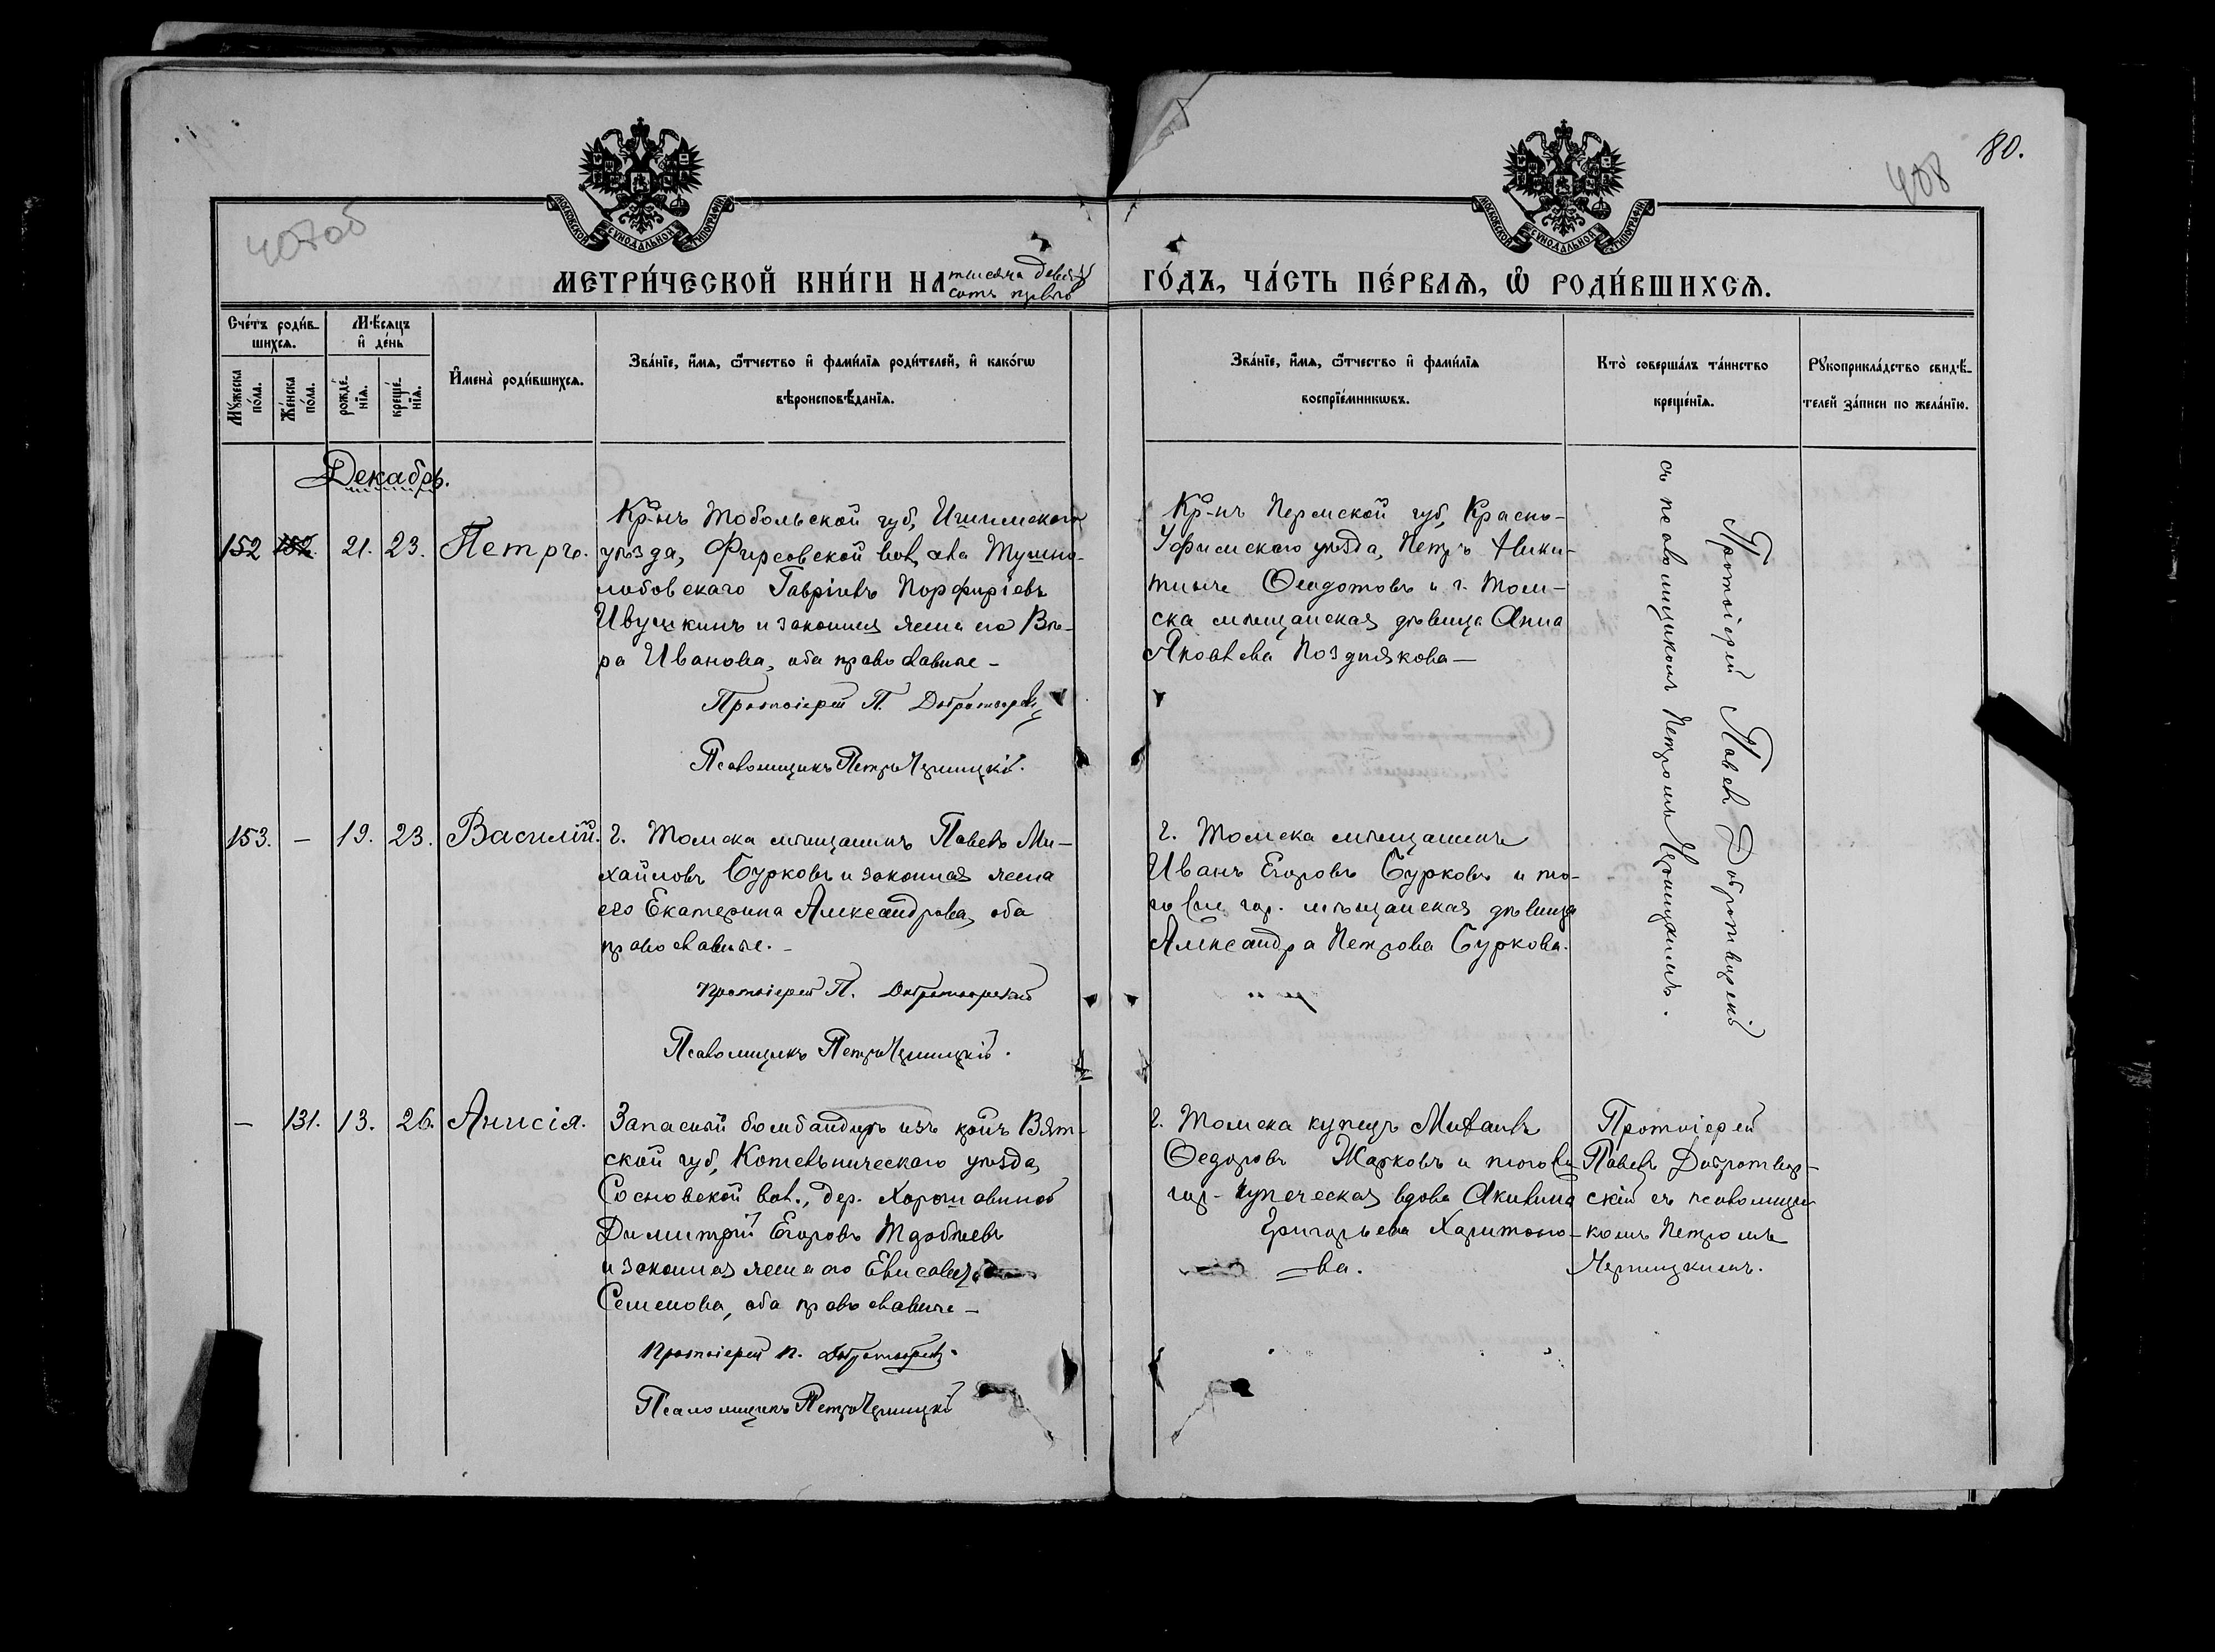 80.
408
407об
МОСКОВСКОЙ СѴНОДАЛЬНОЙ ТИПОГРАФІИ
МОСКОВСКОЙ СѴНОДАЛЬНОЙ ТИПОГРАФІИ
МЕТРИ́ЧЕСКОЙ КНИ́ГИ НА тысяча девять
сотъ первый
ГО́ДЪ, ЧА́СТЬ ПЕ́РВАѦ, Ѽ РОДИ́ВШИХСѦ.
Сче́тъ роди́в-
шихсѧ.
Мꙋ́жеска по́ла.
Же́нска по́ла.
Мѣ́сѧцъ и҆ де́нь
рожде́нїѧ.
креще́нїѧ.
И҆мена̀ роди́вшихсѧ.
Зва́нїе, и҆́мѧ, ѻ҆́тчество и҆ фами́лїѧ роди́телей, и҆ како́гѡ
вѣроисповѣ́данїѧ.
Зва́нїе, и҆́мѧ, ѻ҆́тчество и҆ фами́лїѧ
воспрїе́мникѡвъ.
Кто̀ соверша́лъ та́инство
креще́нїѧ.
Рꙋкоприкла́дство свидѣ́-
телей за́писи по жела́нїю.
Декабрь.
152 152. 21. 23. Петръ.
Кр-нъ Тобольской губ, Ишимскаго
уѣзда, Фирсовской вол, села Тушно-
лобовскаго Гавріилъ Порфиріевъ
Ивушкинъ и законная жена его Вѣ-
ра Иванова, оба православные -
Протоіерей П. Добротворскій
Псаломщикъ Петръ Черницкій.
Кр-нъ Пермской губ, Красно-
Уфимскаго уѣзда, Петръ Ники-
тинъ Ѳедотовъ и г. Том-
ска мѣщанская дѣвица Анна
Яковлева Позднякова -
Протоіерей Павелъ Добротворскій
съ псаломщикомъ Петромъ Черницкимъ.
153. - 19. 23. Василій.
г. Томска мѣщанинъ Павелъ Ми-
хайловъ Бурковъ и законная жена
его Екатерина Александрова, оба
православные. -
Протоіерей П. Добротворскій
Псаломщикъ Петръ Черницкій.
г. Томска мѣщанинъ
Иванъ Егоровъ Бурковъ и то-
го же гор. мѣщанская дѣвица
Александра Петрова Буркова.
- 131. 13. 26. Анисія.
Запасный бомбандиръ изъ кр-нъ Вят-
ской губ, Котельническаго уѣзда,
Сосновской вол., дер.
Димитрій Егоровъ
и законная жена его Елисавета
Семенова, оба православные -
Протоіерей П. Добротворскій.
Псаломщикъ Петръ Черницкій
г. Томска купецъ Михаилъ
Ѳедоровъ Жарковъ и того же
гор- купеческая вдова Акилина
Григорьева Харитоно-
=ва.
Протоіерей
Павелъ Добротвор-
скій съ псаломщи-
комъ Петромъ
Черницкимъ.